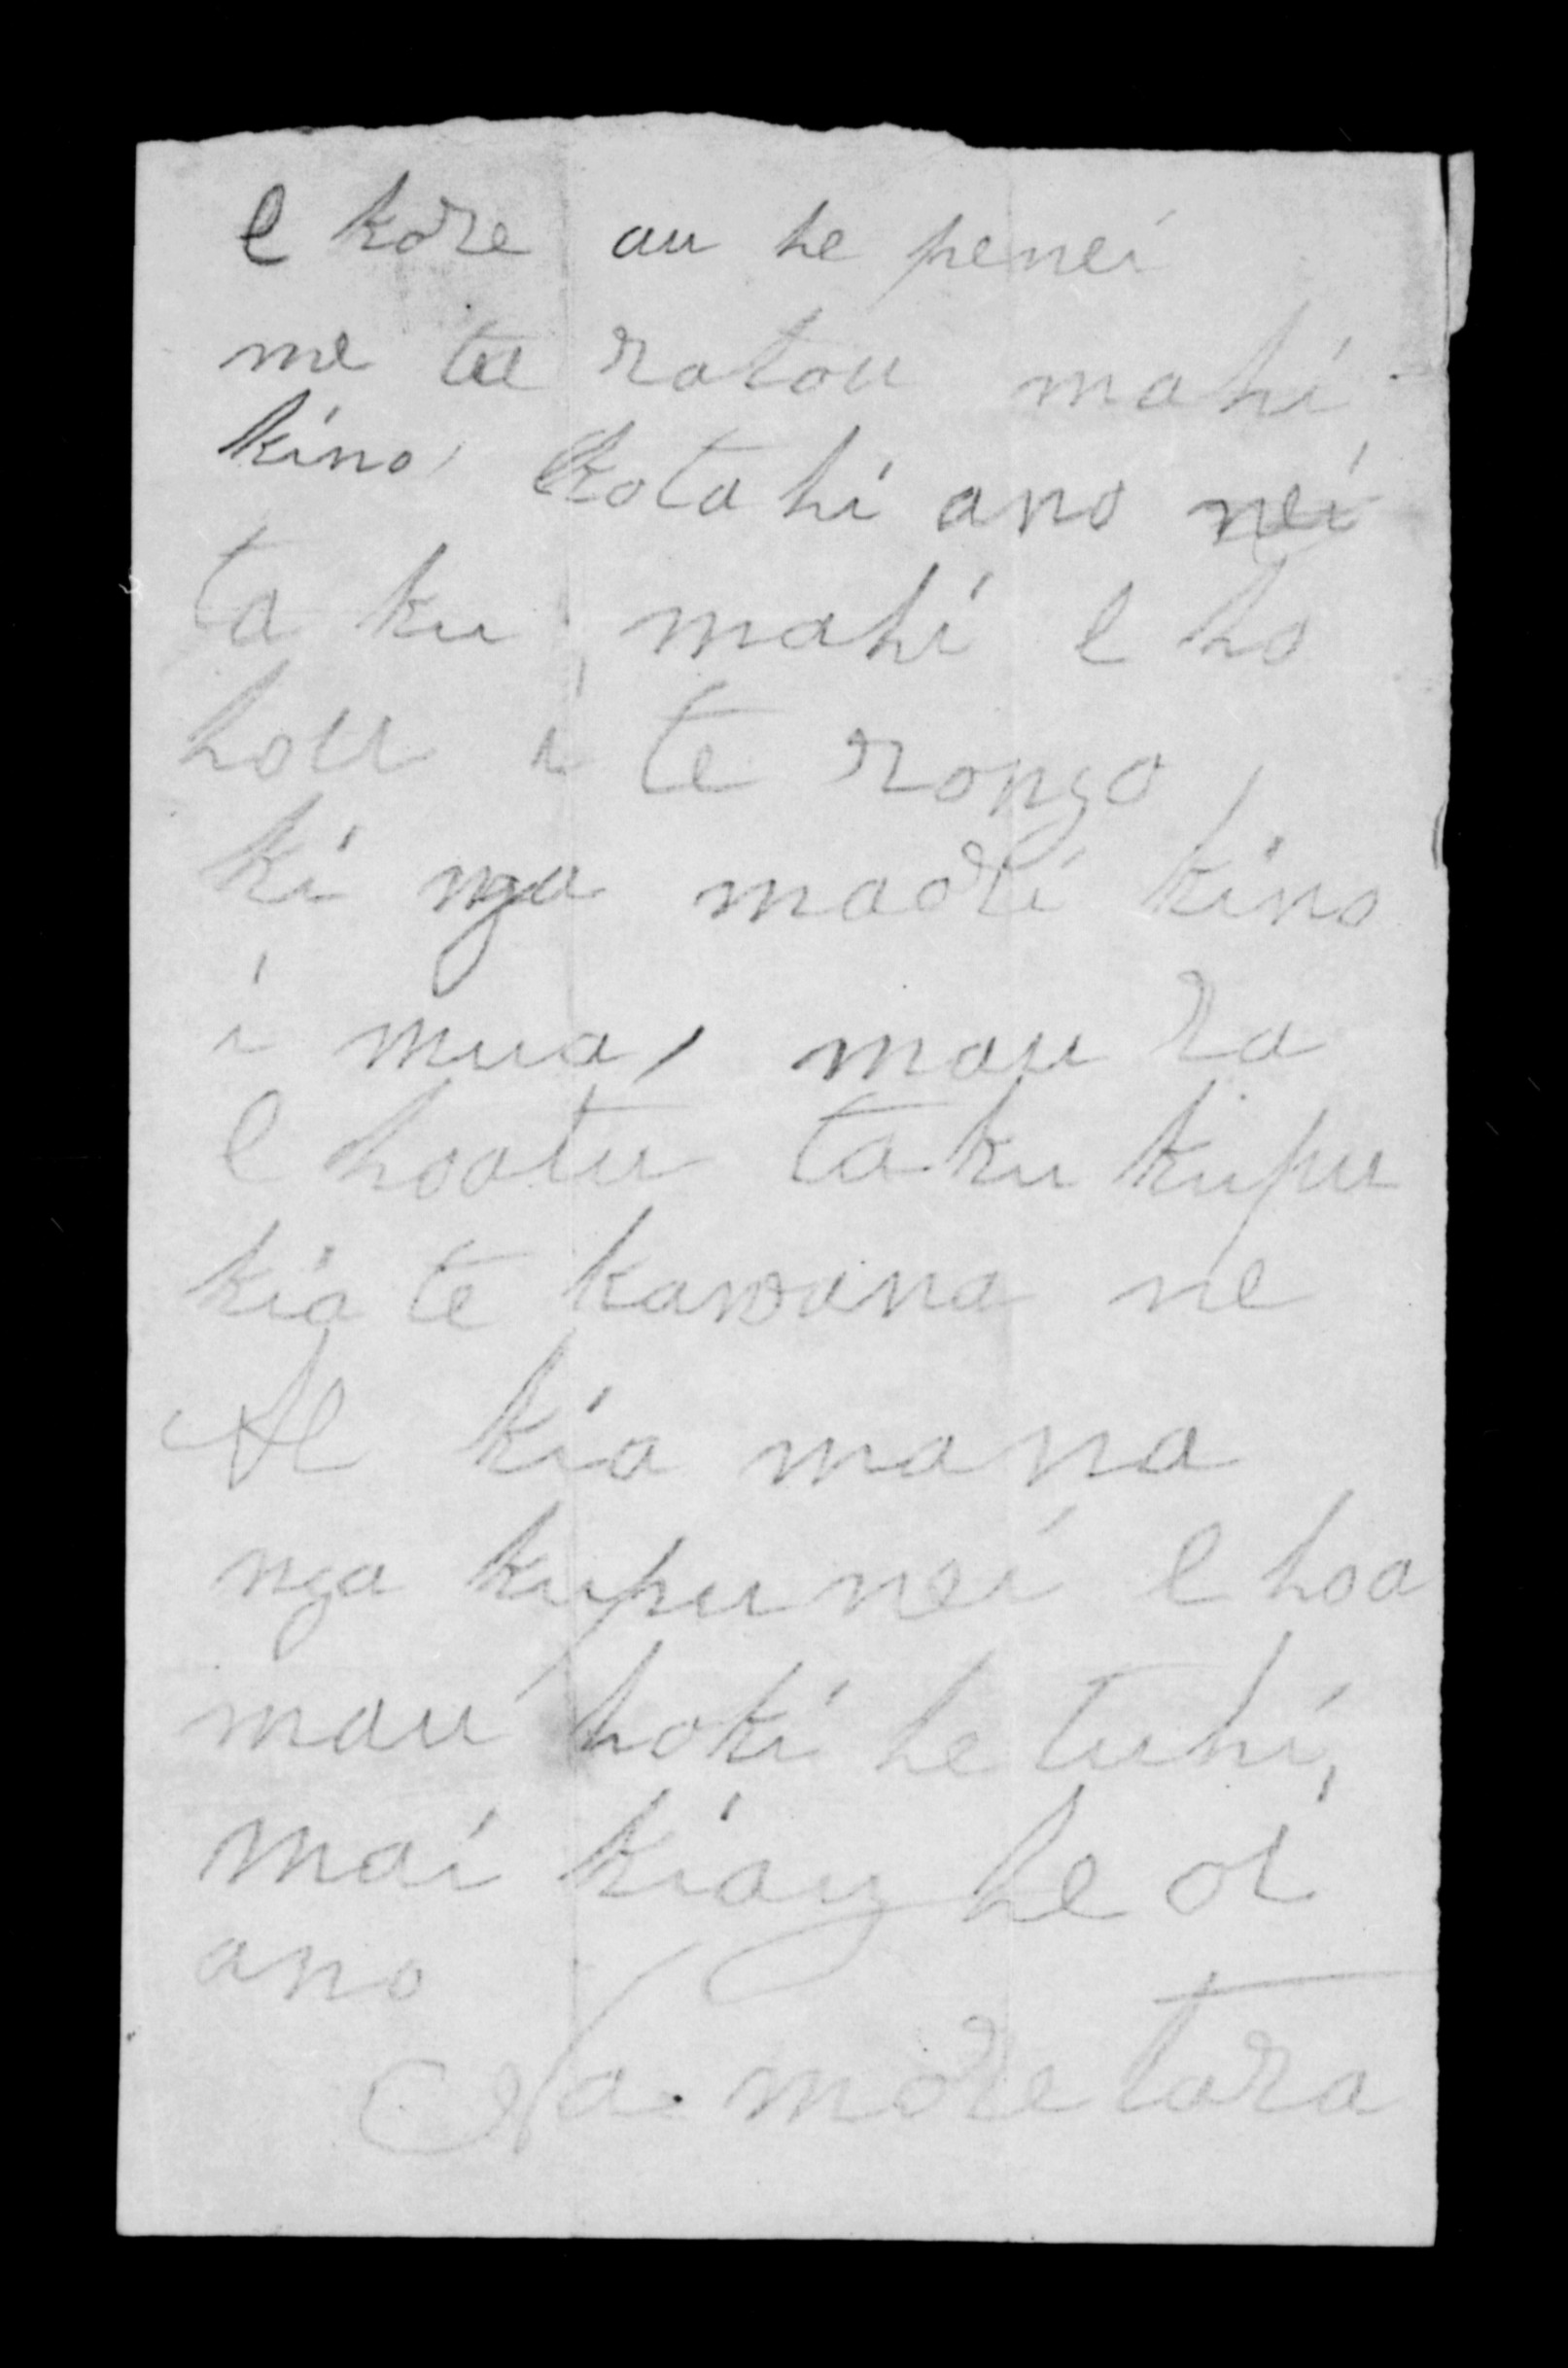 e kore au he penei
me te ratou mahi
kino, kotahi ano nei
ta ku mahi e ho
hou i te rongo,
ki nga maori kino
i mua, mau ra
e hoatu taku kupu
kia te kawana ne
Ae kia mana
nga kupu nei e hoa
mau hoki he tuhi,
mai kiau he oi
ano
Na moretara